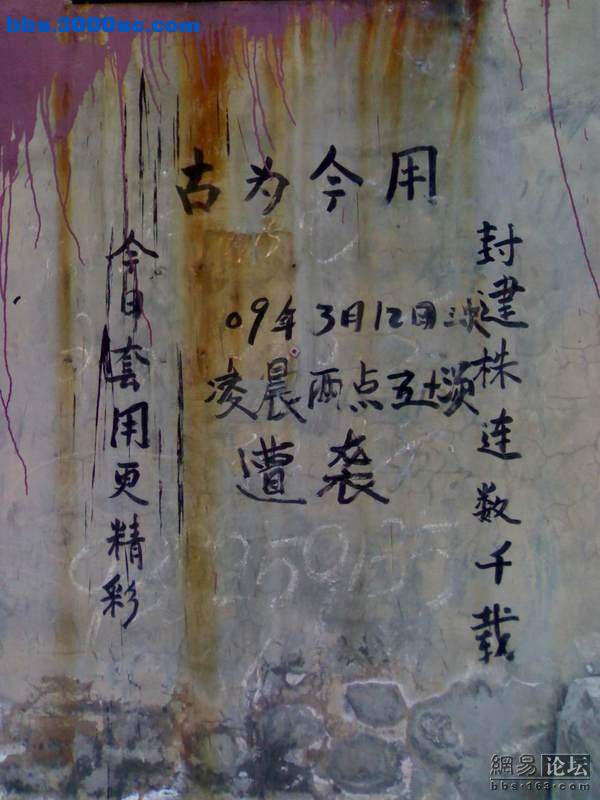 bbs.3000sc.com
古为今用
封建株连数千载
09年3月12日三次
凌晨两点五十
遭袭
今日套用更精彩
網易论坛
bbs·163·com